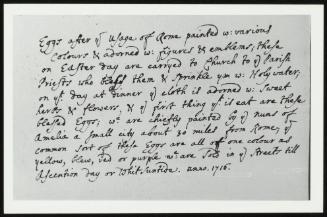 Eggs after yᵉ Usage of Rome painted wᵗ: various
Colours & adorned wᵗ: figures & emblems; these
on Easter day are carryed to Church to yᵉ Parish
Priests who bless them & sprinkle ym wᵗ: Holy water;
on yᵗ Day at Dinner yᵉ cloth is adorned wᵗ: Sweet
herbs & flowers, & yᵉ first thing yᵗ is eat are these
blessed Eggs; wᶜʰ are chiefly painted by yᵉ nuns of
Amelia a small city about 30 miles from Rome; yᵉ
common sort of these Eggs are all of one colour as
yellow, blew, red or purple wᶜʰ are sold in yᵉ streets till
Ascention day or Whitsuntide. anno. 1716.